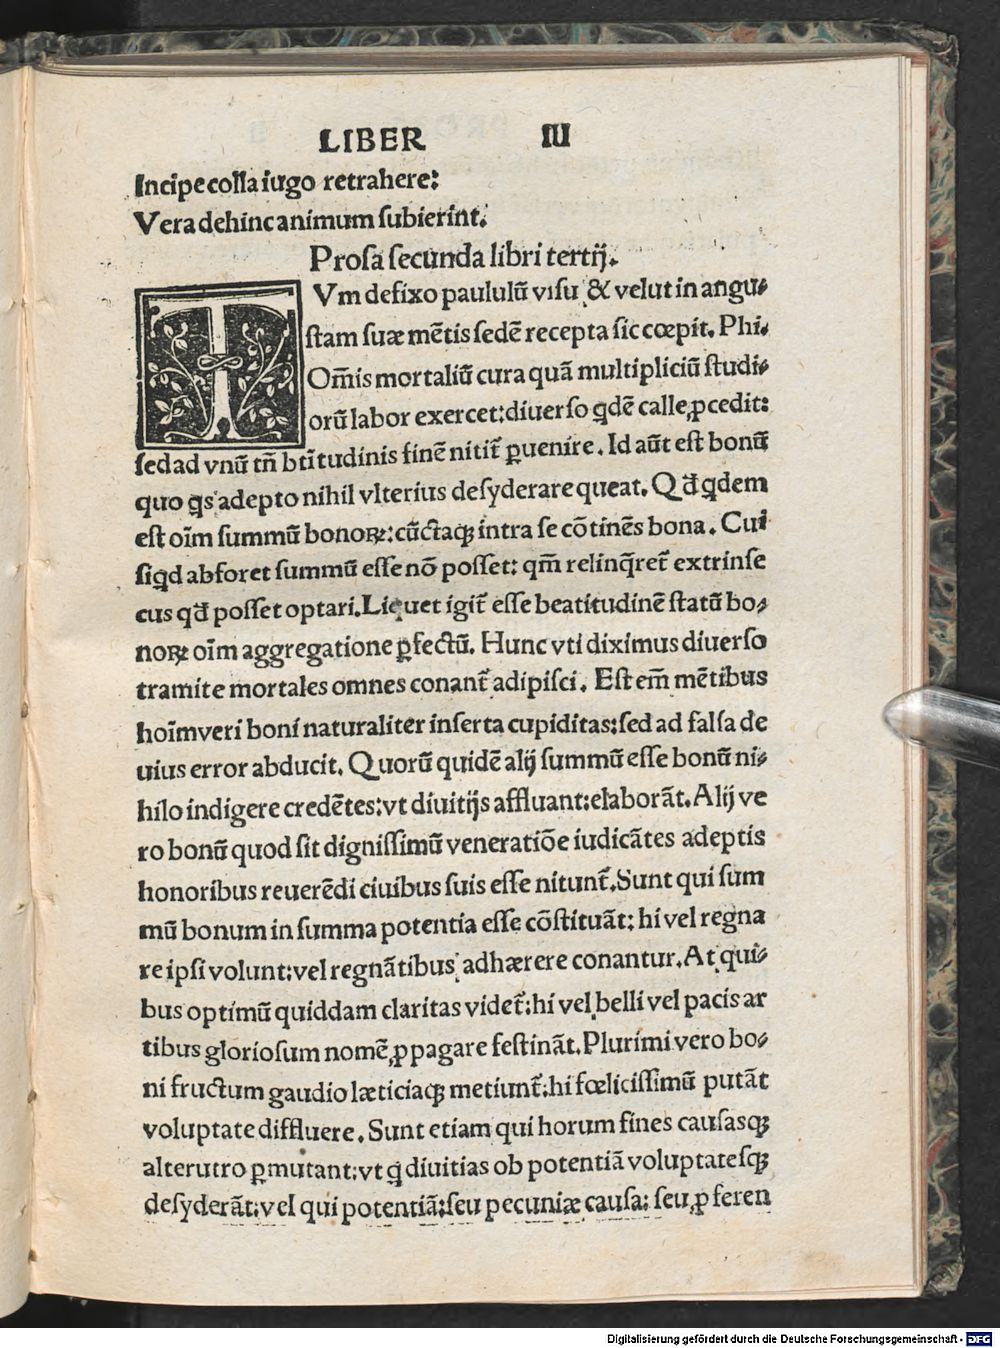 LIBER III
Incipe colla iugo retrahere:
Vera dehinc animum subierint.
Prosa secunda libri tertij.
TVm defixo paululū visu & velut in angu⸗
stam suæ mētis sedē recepta sic cœpit. Phi.
Om̄is mortaliū cura quā multipliciū studi⸗
orū labor exercet: diuerso qdē calle ꝓcedit:
sed ad vnū tn̄ btītudinis finē nitit̄ ꝑuenire. Id aūt est bonū
quo qs adepto nihil vlterius desyderare queat. Qd̄ qdem
est oīm summū bonoꝝ: cūctaqꝫ intra se cōtinēs bona. Cui
siqd abforet summū esse nō posset: qm̄ relinq̄ret̄ extrinse
cus qd̄ posset optari. Liquet igit̄ esse beatitudinē statū bo⸗
noꝝ oīm aggregatione ꝑfectū. Hunc vti diximus diuerso
tramite mortales omnes conant̄ adipisci. Est em̄ mētibus
hoīm veri boni naturaliter inserta cupiditas: sed ad falsa de
uius error abducit. Quorū quidē alij summū esse bonū ni⸗
hilo indigere credētes: vt diuitijs affluant: elaborāt. Alij ve
ro bonū quod sit dignissimū veneratiōe iudicātes adeptis
honoribus reuerēdi ciuibus suis esse nitunt̄. Sunt qui sum
mū bonum in summa potentia esse cōstituāt: hi vel regna
re ipsi volunt: vel regnātibus adhærere conantur. At qui⸗
bus optimū quiddam claritas videt̄: hi vel belli vel pacis ar
tibus gloriosum nomē ꝓpagare festināt. Plurimi vero bo⸗
ni fructum gaudio læticiaqꝫ metiunt̄: hi fœlicissimū putāt
voluptate diffluere. Sunt etiam qui horum fines causasqꝫ
alterutro ꝑmutant: vt q̄ diuitias ob potentiā voluptatesqꝫ
desyderāt: vel qui potentiā: seu pecuniæ causa: seu ꝓferen
Digitalisierung gefördert durch die Deutsche Forschungsgemeinschaft - DFG